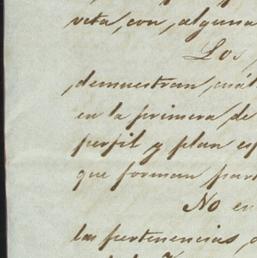 veta, con, alguna
Los
demuestran, cuál
en la primera de
perfil y plan es
que forman part
No en
las pertenencias